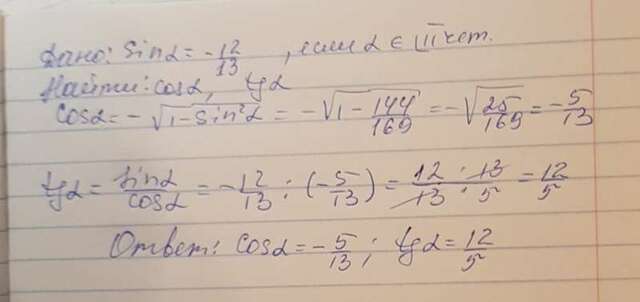 Дано: sinα = -12/13, если α ∈ III чет.
Найти: cosα, tgα
Cosα = -√(1-sin²α) = -√(1-144/169) = -√(25/169) = -5/13
tgα = sinα/cosα = -12/13 : (-5/13) = (12 · 13)/(13 · 5) = 12/5
Ответ: cosα = -5/13; tgα = 12/5